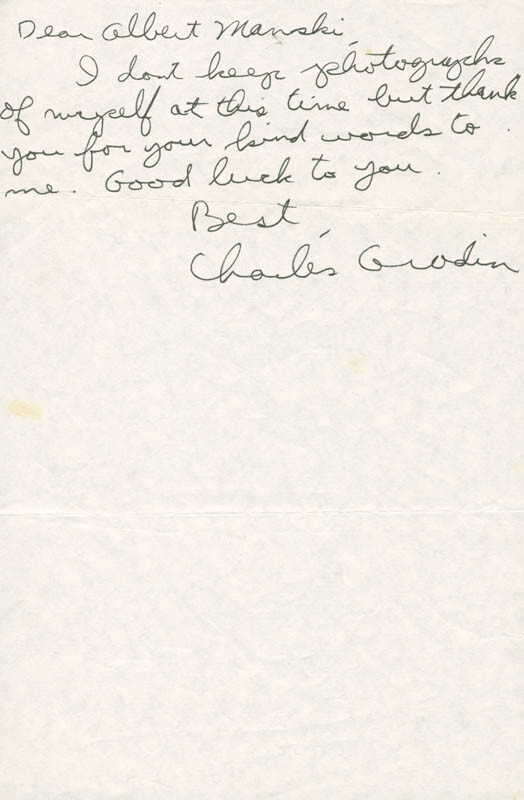 Dear Albert Manski,
I don't keep photographs
of myself at this time but thank
you for your kind words to
me. Good luck to you.
Best,
Charles Grodin